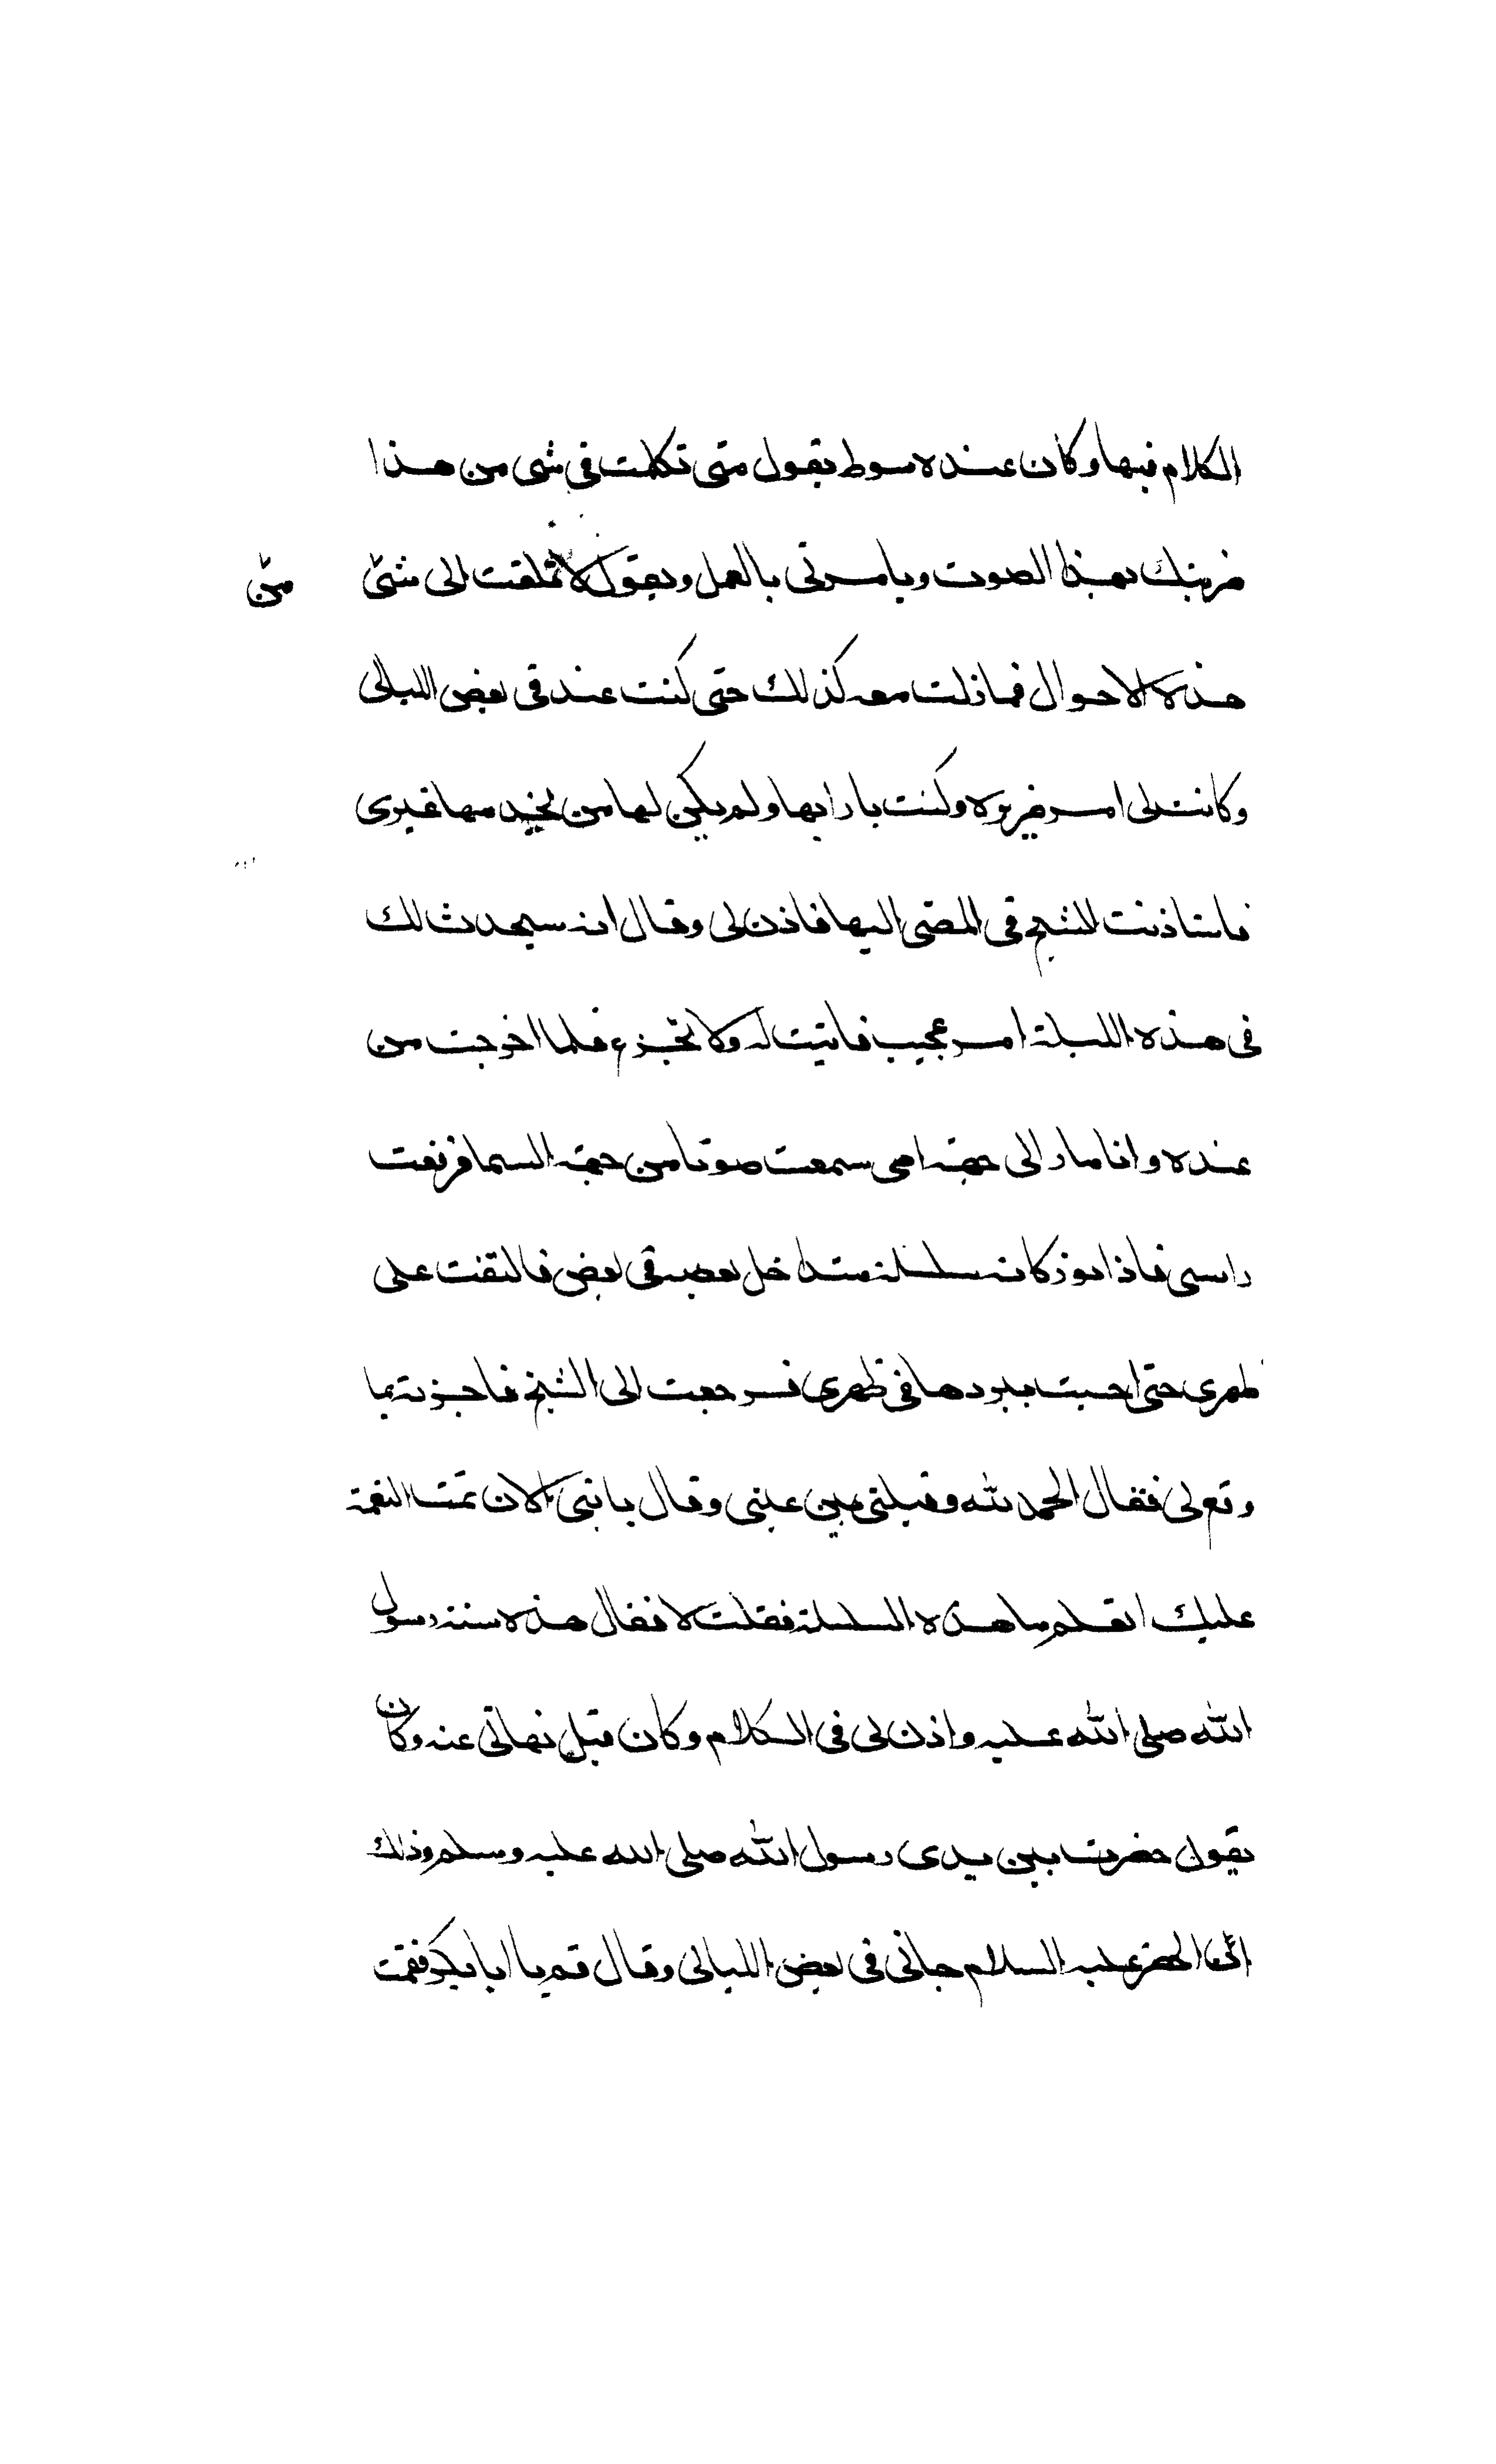 الكلام فيها وكان عنده سوط يقول متى تكلمت في شي من هذا
ضربتك بهذا الصوت ويامرني بالعمل ويقول لا تلتفت الى شئ من
هذه الاحوال فما زلت معه كذلك حتى كنت عند في بعض الليالى
وكانت لى ام ضريره وكنت بارا بها ولم يكن لها من يخدمها غيرى
فاستاذنت الشيخ في المضى اليها فاذن لى وقال انه سيحدث لك
في هذه الليلة امر عجيب فاثبت له ولا تجزع فلما اخرجت من
عنده وانا مار الى جهة امى سمعت صوتا من جهة السما فرفعت
راسى فاذا نور كانه سلسلة متداخل بعضه في بعض فالتفت على
ظهرى حتى احسيت ببردها في ظهرى فرجعت الى الشيخ فاخبرته بما
وقع لى فقال الحمد لله وقبلنى بين عينى وقال يا بنى الان تمت النعمة
عليك اتعلم ما هذه السلسلة فقلت لا فقال هذه سنة رسول
الله صلى الله عليه واذن لى في الكلام وكان قبل نهانى عنه وكان
يقول حضرت بين يدى رسول الله صلى الله عليه وسلم وذلك
ان الخضر عليه السلام جانى في بعض الليالى وقال قم يا ابا بكر فقمت